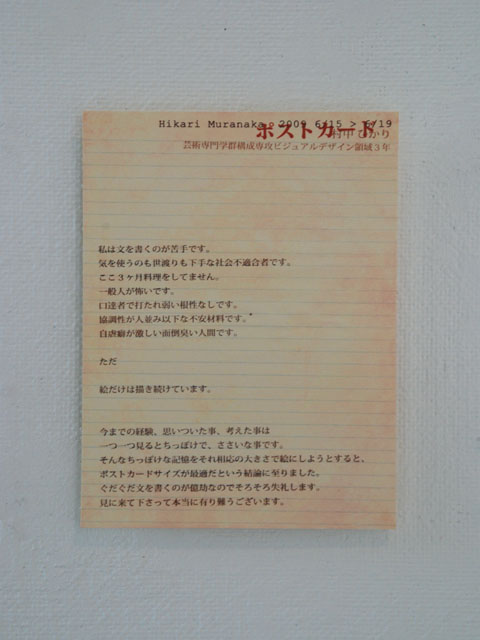 Hikari Muranaka 2009 6/15 > 6/19
ポストカード
村中ひかり
芸術専門学群構成専攻ビジュアルデザイン領域3年
私は文を書くのが苦手です。
気を使うのも世渡りも下手な社会不適合者です。
ここ3ヶ月料理をしてません。
一般人が怖いです。
口達者で打たれ弱い根性なしです。
協調性が人並み以下な不安材料です。
自虐癖が激しい面倒臭い人間です。
ただ
絵だけは描き続けています。
今までの経験、思いついた事、考えた事は
一つ一つ見るとちっぽけで、ささいな事です。
そんなちっぽけな記憶をそれ相応の大きさで絵にしようとすると、
ポストカードサイズが最適だという結論に至りました。
ぐだぐだ文を書くのが億劫なのでそろそろ失礼します。
見に来て下さって本当に有り難うございます。